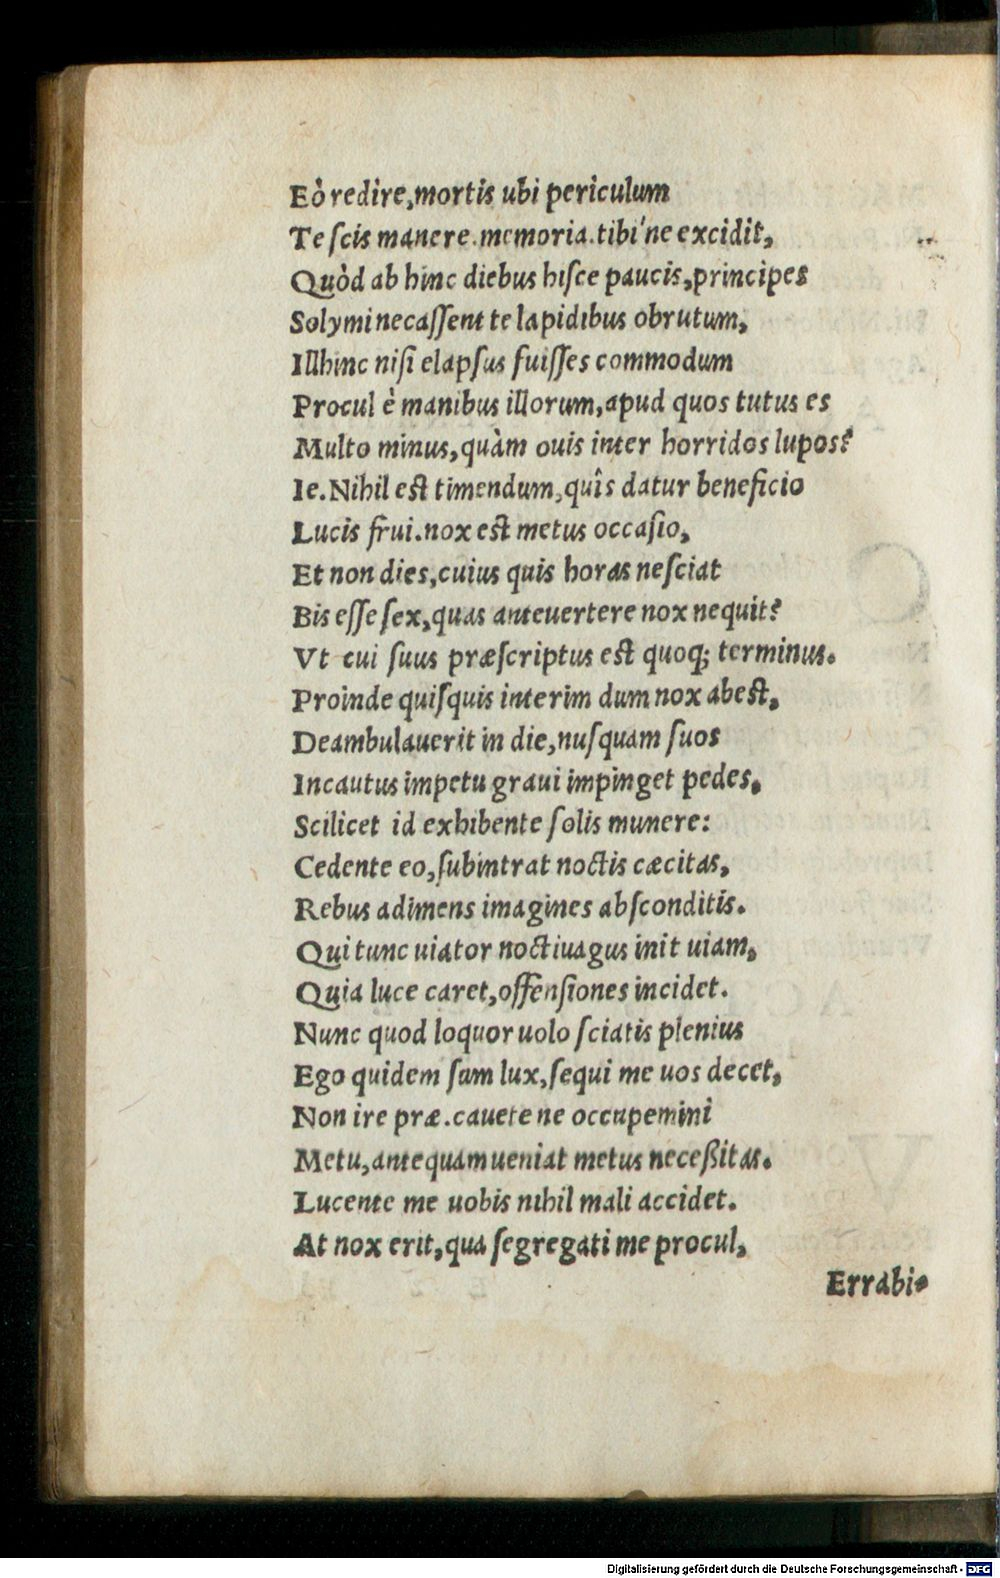 Eò redire, mortis ubi periculum
Te ſcis manere. memoria. tibi'ne excidit,
Quòd ab hinc diebus hiſce paucis, principes
Solymi necaſſent te lapidibus obrutum,
Illhinc niſi elapſus fuiſſes commodum
Procul è manibus illorum, apud quos tutus es
Multo minus, quàm ouis inter horridos lupos?
Ie. Nihil est timendum, quîs datur beneficio
Lucis frui. nox est metus occaſio,
Et non dies, cuius quis horas neſciat
Bis eſſe ſex, quas anteuertere nox nequit?
Vt cui ſuus præſcriptus est quoq; terminus.
Proinde quiſquis interim dum nox abest,
Deambulauerit in die, nuſquam ſuos
Incautus impetu graui impinget pedes,
Scilicet id exhibente ſolis munere:
Cedente eo, ſubintrat noctis cæcitas,
Rebus adimens imagines abſconditis.
Qui tunc uiator noctiuagus init uiam,
Quia luce caret, offenſiones incidet.
Nunc quod loquor uolo ſciatis plenius
Ego quidem ſum lux, ſequi me uos decet,
Non ire præ. cauete ne occupemini
Metu, antequam ueniat metus neceßitas.
Lucente me uobis nihil mali accidet.
At nox erit, qua ſegregati me procul,
Errabi-
Digitalisierung gefördert durch die Deutsche Forschungsgemeinschaft - DFG